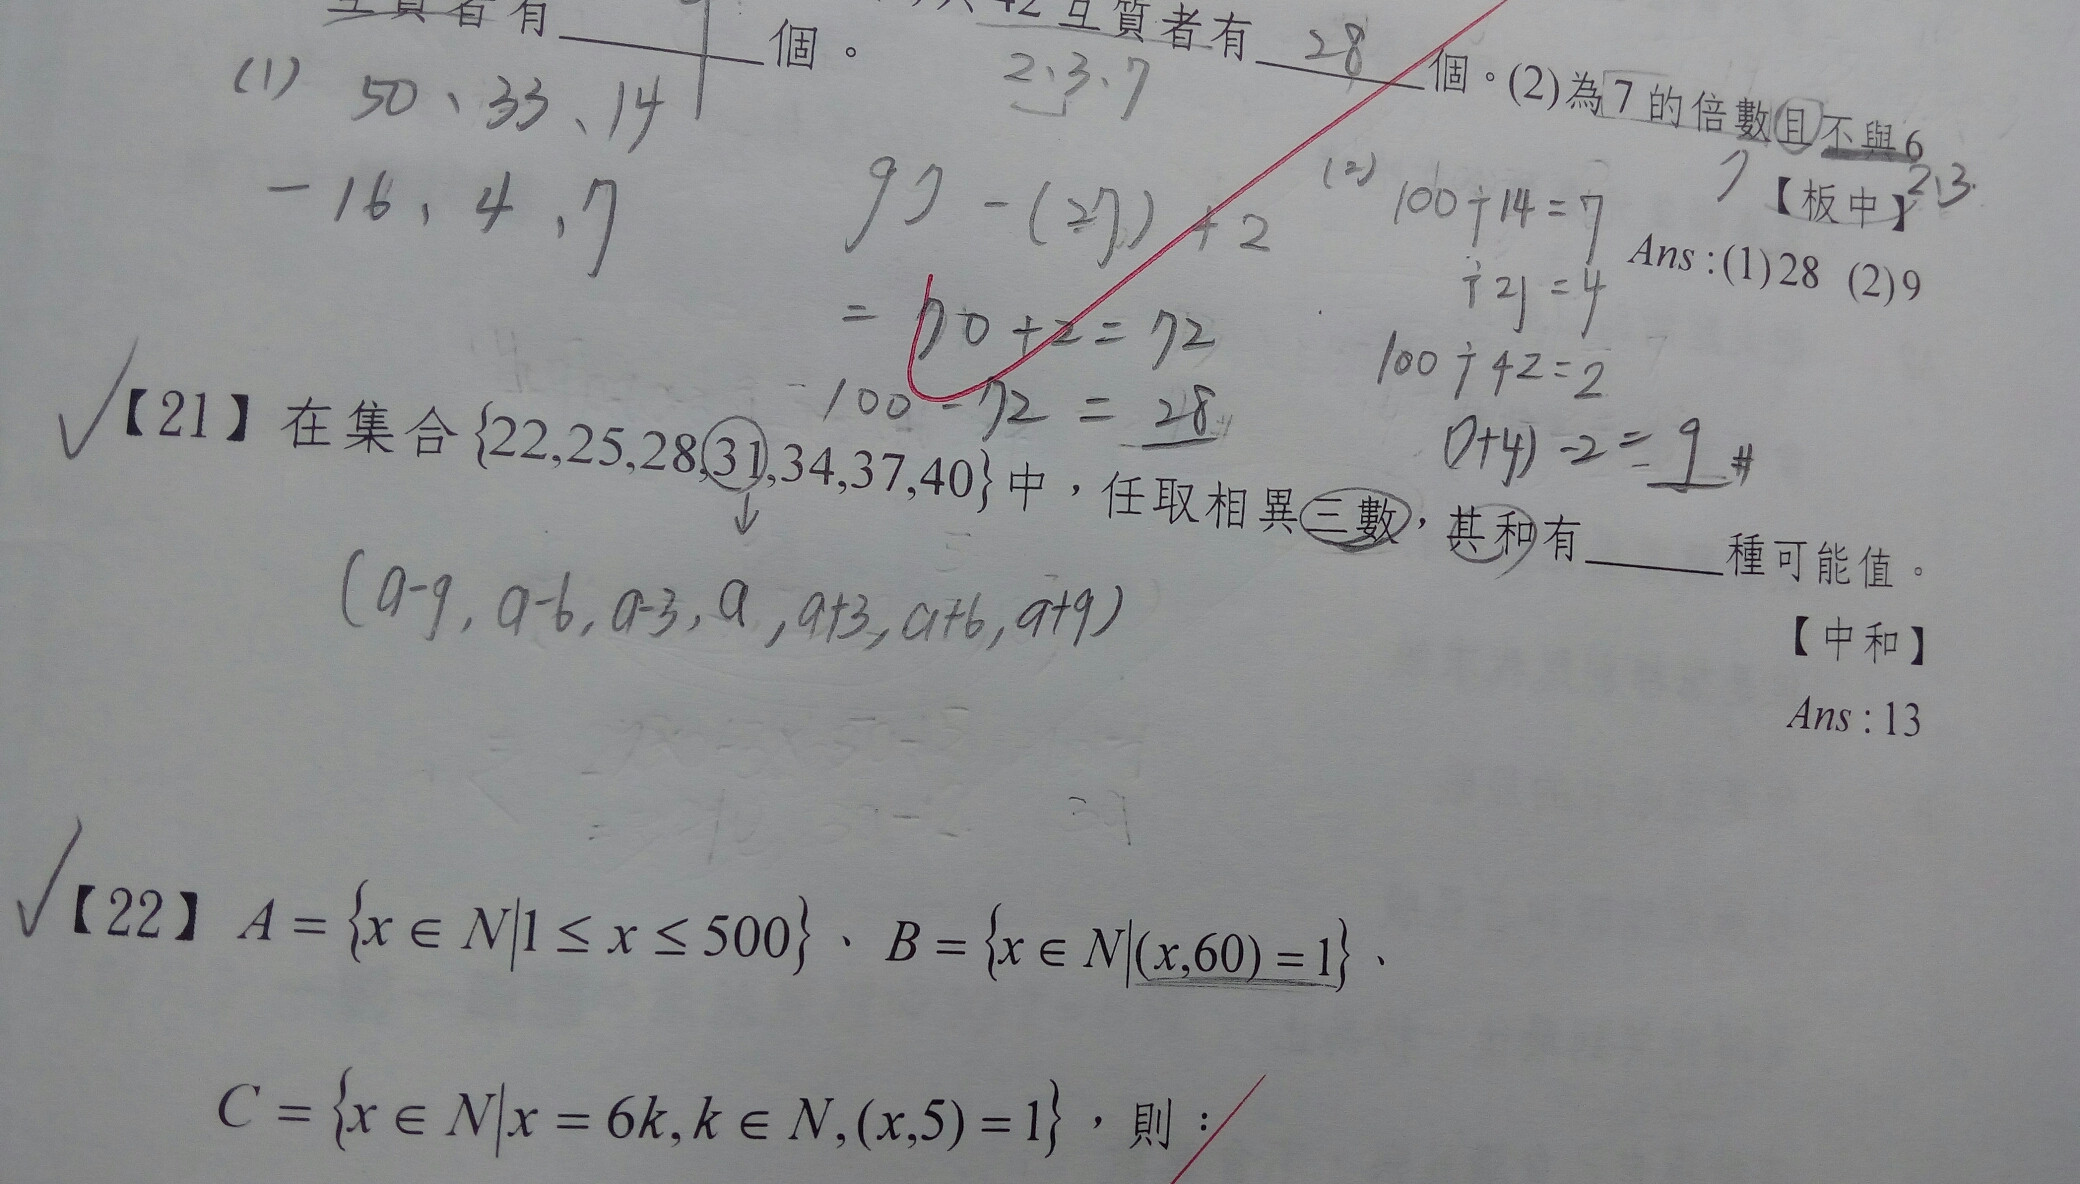 互質者有______個。
42互質者有 28 個。(2)為7的倍數且不與6
2、3、7
【板中】
2、3
Ans:(1)28 (2)9
(1) 50、33、14
-16、4、7
97-(27)+2
=70+2=72
100-72=28
(2) 100÷14=7
÷21=4
100÷42=2
(7+4)-2=9#
【21】在集合{22,25,28,31,34,37,40}中，任取相異三數，其和有______種可能值。
【中和】
Ans:13
↓
(a-9, a-6, a-3, a, a+3, a+6, a+9)
【22】A={x∈N|1≤x≤500}、B={x∈N|(x,60)=1}、
C={x∈N|x=6k,k∈N,(x,5)=1}，則：